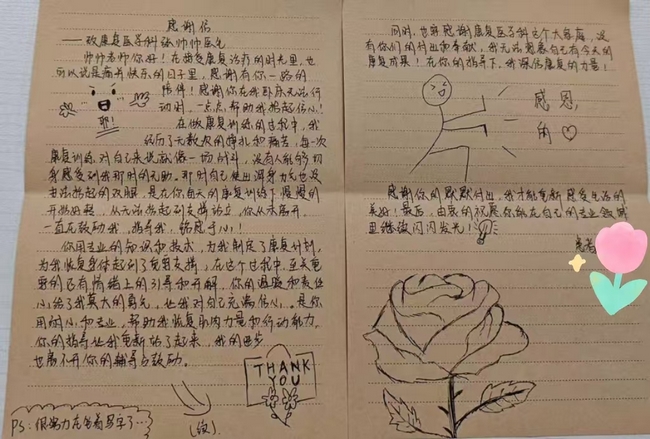 感谢信
——致康复医学科张帅帅医生
帅帅老师你好！在接受康复治疗的时光里，也
可以说是痛并快乐的日子里，感谢有你一路的
陪伴！感谢你在我卧床无法行
动时，一点点帮助我抬起信心！
耶！
在做康复训练的过程中，我
经历了无数次的挣扎和痛苦，每一次
康复训练对自己来说就像一场战斗，没有人能够切
身感受到我那时的无助。那时自己使出浑身力气也没
的双腿，是在你每天的康复训练下慢慢的
开始好转，从无法抬起到支撑站立，你从未离开，
一直在鼓励我，指导我，铭感于心！
你用专业的知识和技术，为我制定了康复计划，
为我恢复身体起到了重要支撑，在这个过程中，至关重
要的还有情绪上的引导和开解，你的温暖和责任
心给了我莫大的勇气，让我对自己充满信心。是你
用耐心和专业，帮助我恢复肌肉力量和行动能力。
你的指导让我重新站了起来，我的进步
也离不开你的辅导与鼓励。
THANK
YOU
PS：很努力在写字了…
（续）
同时，也要感谢康复医学科这个大家庭，没
有你们的付出和奉献，我无法想象自己有今天的
康复成果！在你的指导下，我深信康复的力量！
感恩，
的
感谢你的默默付出，我才能重新感受生活的
美好！最后，由衷的祝愿你能在自己的专业领域
里继续闪闪发光！